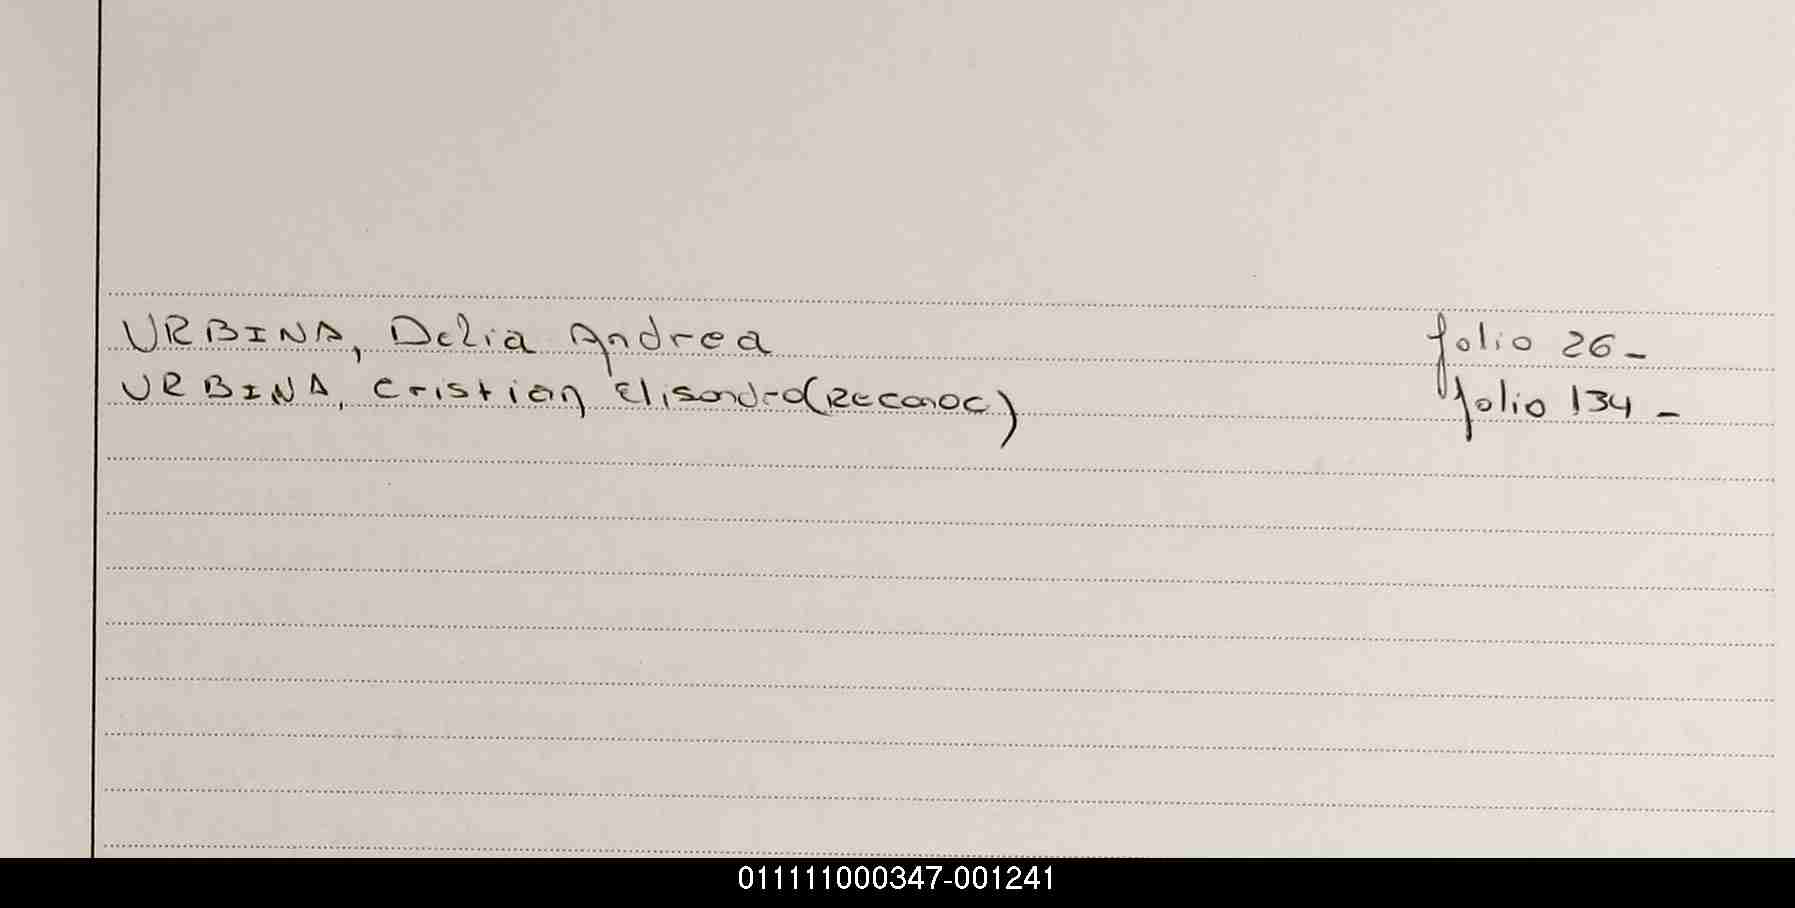 URBINA, Delia Andrea folio 26-
URBINA, Cristian Elisandro (Reconoc) folio 134-
011111000347-001241